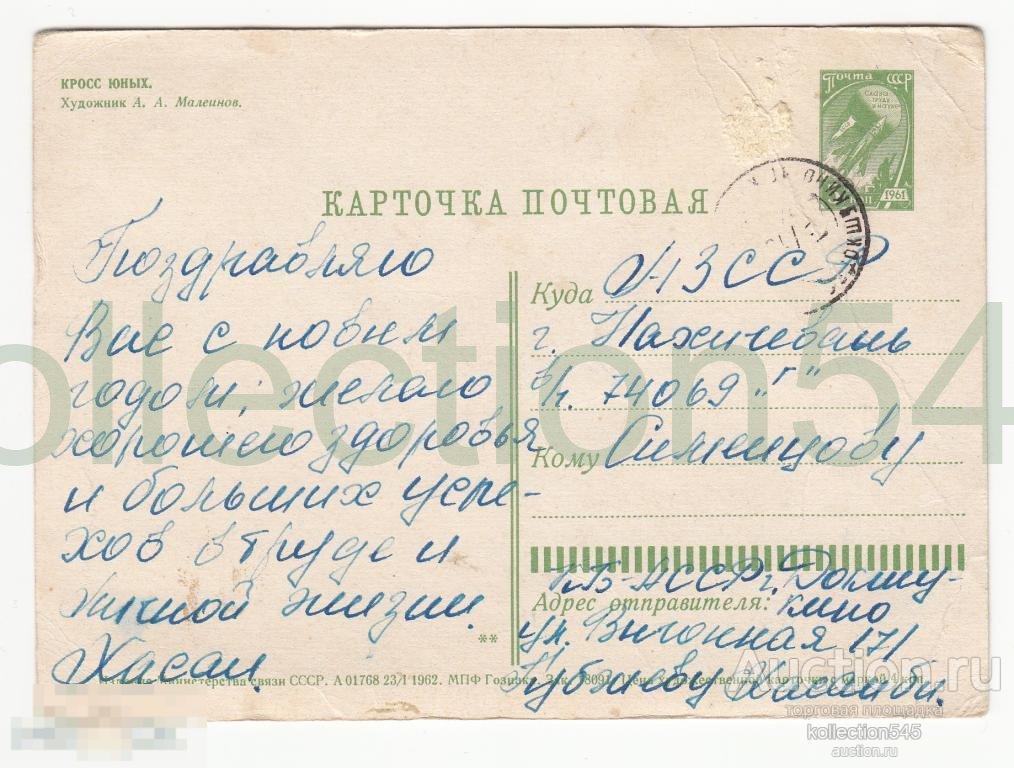 КРОСС ЮНЫХ.
Художник А. А. Малеинов.
Почта СССР
СЛАВА
ТРУДУ
И НАУКЕ
1961
КАРТОЧКА ПОЧТОВАЯ
Поздравляю
Вас с новым
годом, желаю
хорошего здоровья
и больших успе-
хов в труде и
личной жизни.
Хасан.
Куда АзССР
г. Нахичевань
в/ч. 74069 "Г"
Кому Сименцову
КБ-АССР г.
Адрес отправителя:
ул. Выгонная 171
**
Министерства связи СССР. А 01768 23/I 1962. МПФ Гознака. Зак. Цена художественной карточки с маркой 4 коп.
ollection54
Auction.ru
торговая площадка
kollection545
auction.ru